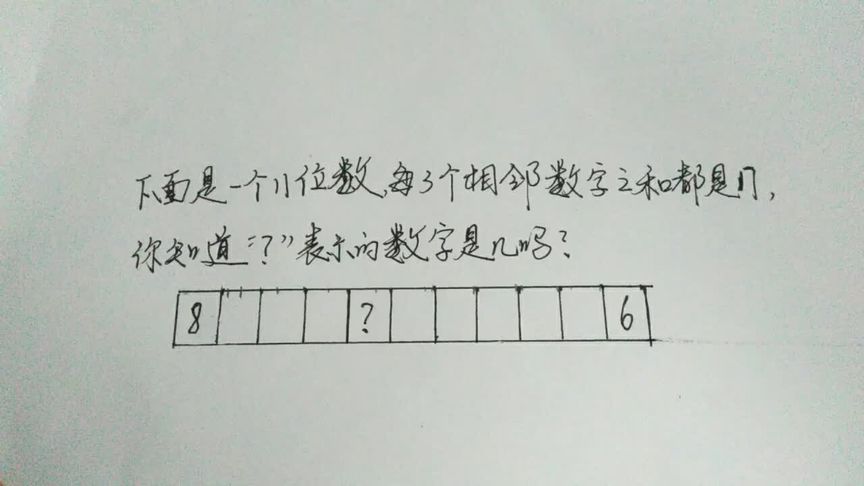 下面是一个11位数,每3个相邻数字之和都是17,
你知道“?”表示的数字是几吗?
8 ? 6